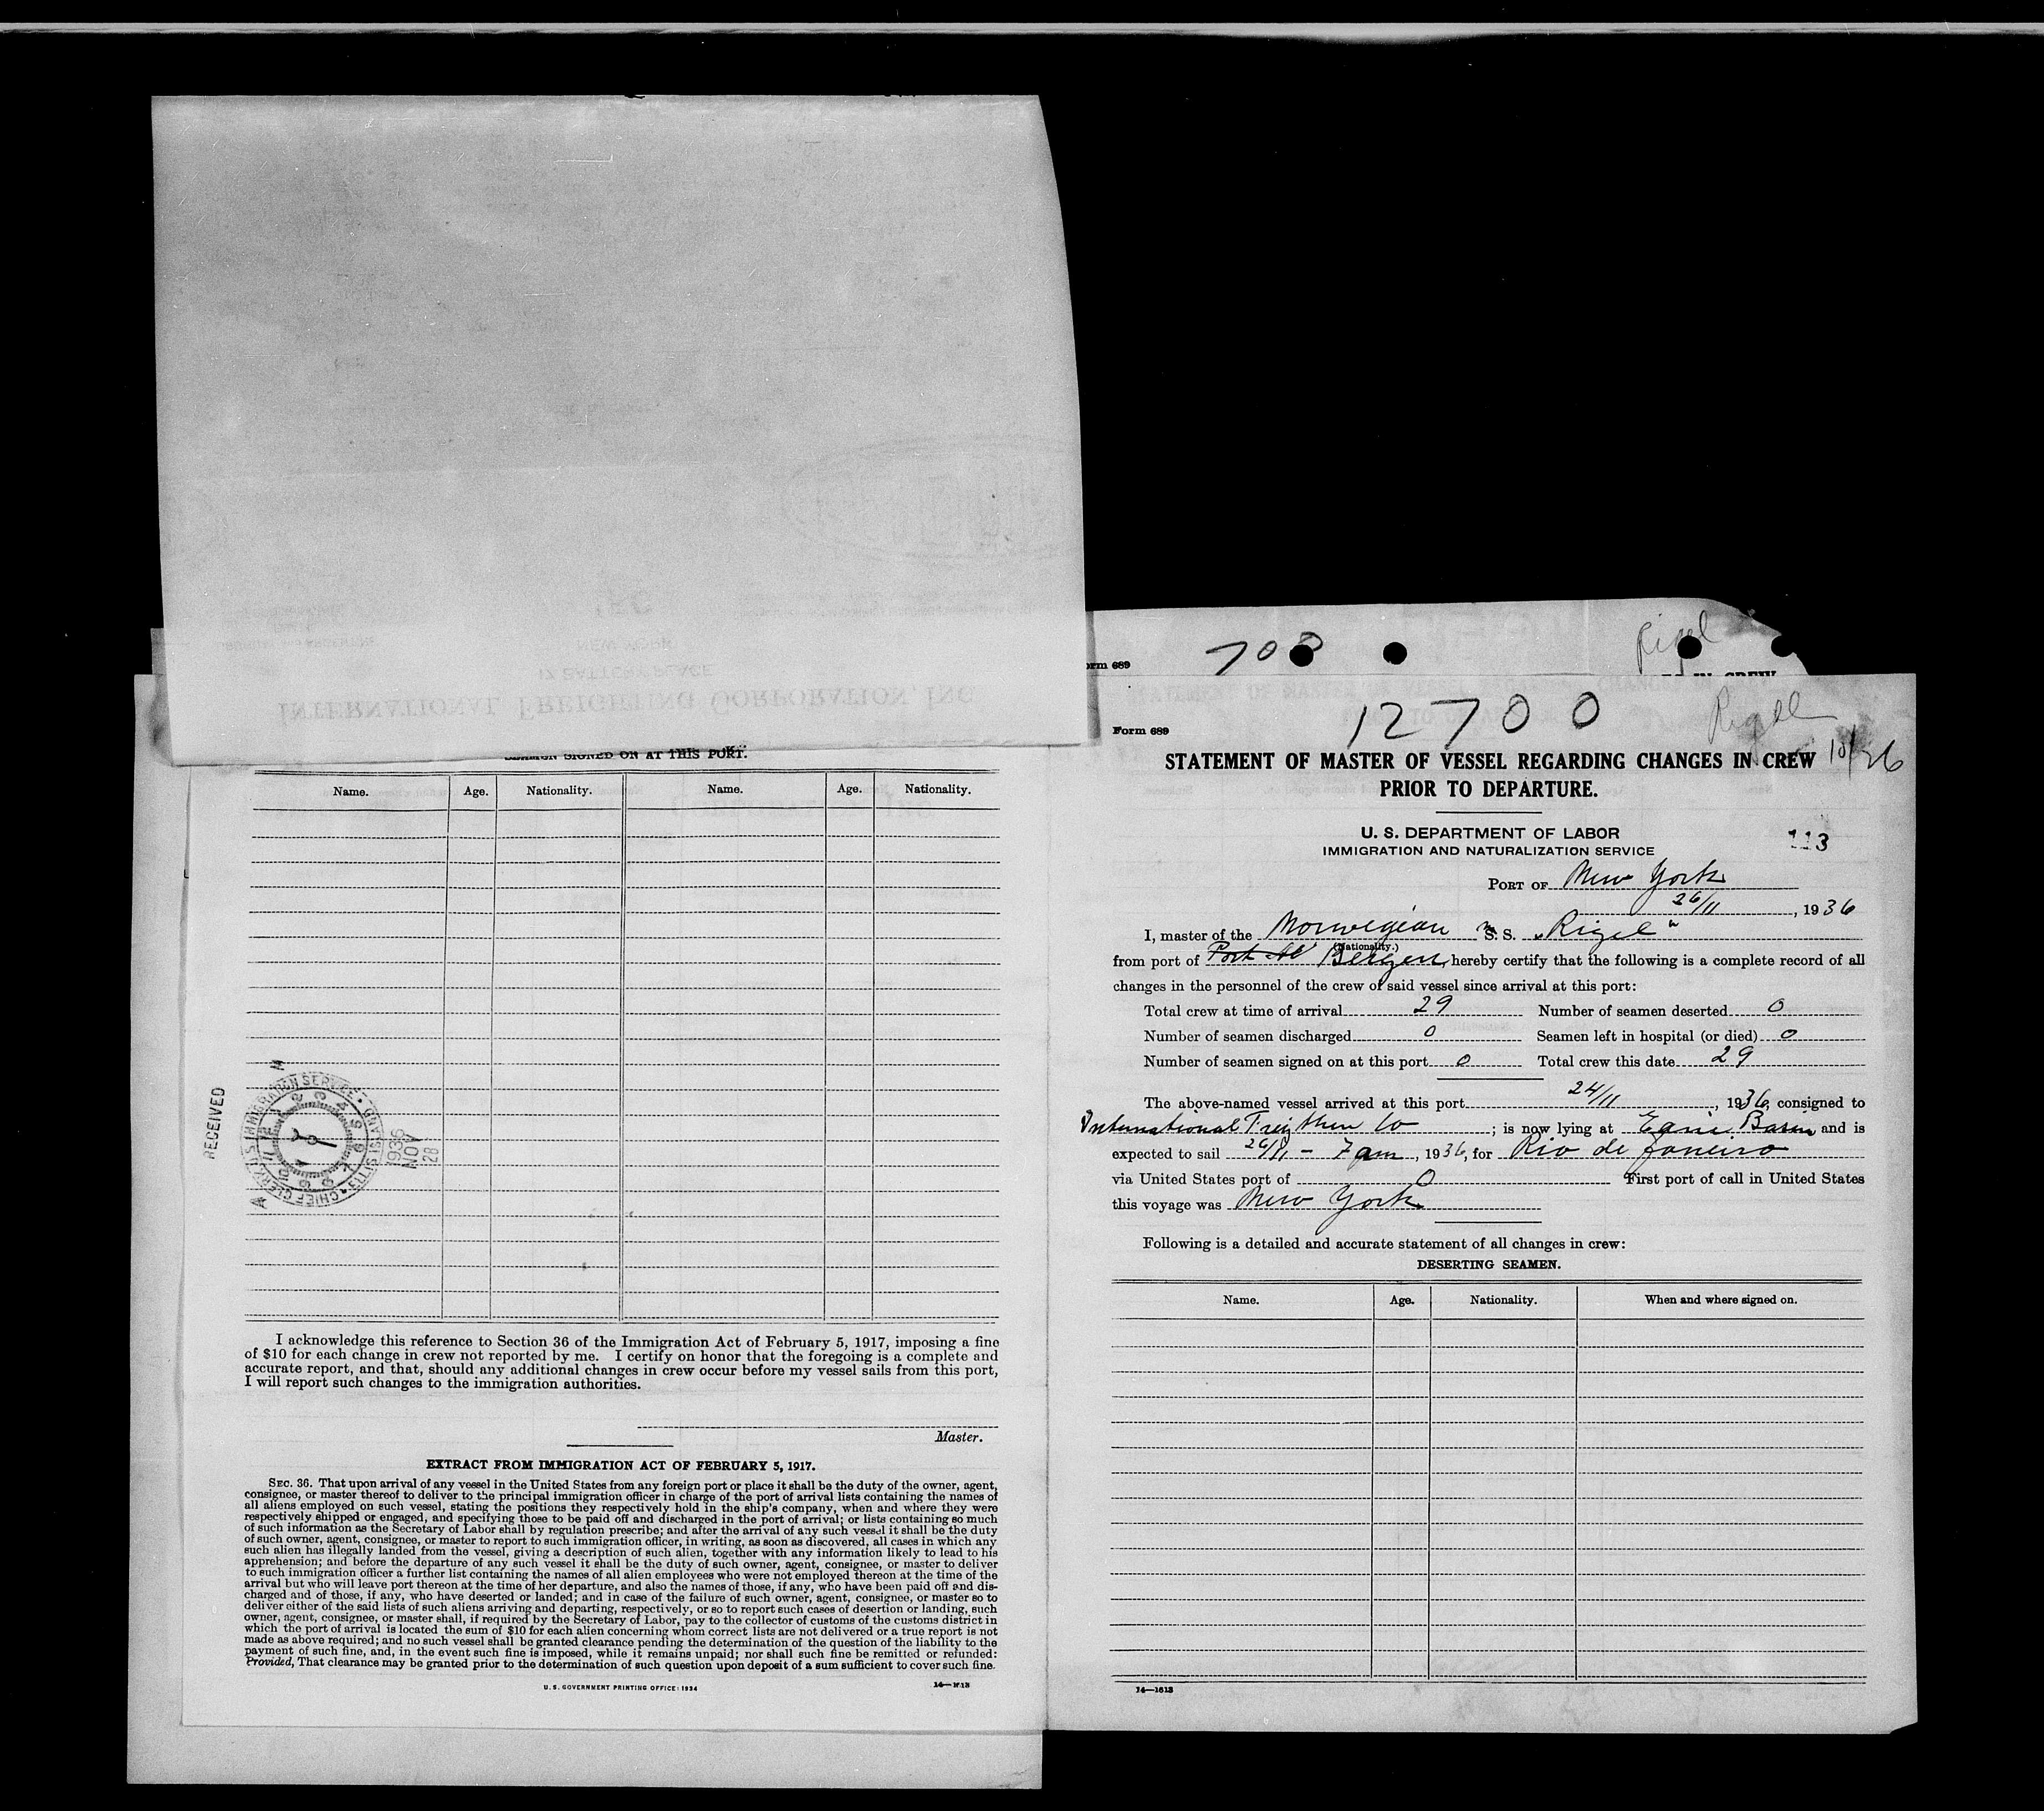 INTERNATIONAL FREIGHTING CORPORATION, INC
17 BATTERY PLACE
NEW YORK
SEAMEN SIGNED ON AT THIS PORT.
Name. Age. Nationality. Name. Age. Nationality.
RECEIVED
1936
NOV
28
I acknowledge this reference to Section 36 of the Immigration Act of February 5, 1917, imposing a fine
of $10 for each change in crew not reported by me. I certify on honor that the foregoing is a complete and
accurate report, and that, should any additional changes in crew occur before my vessel sails from this port,
I will report such changes to the immigration authorities.
Master.
EXTRACT FROM IMMIGRATION ACT OF FEBRUARY 5, 1917.
SEC. 36. That upon arrival of any vessel in the United States from any foreign port or place it shall be the duty of the owner, agent,
consignee, or master thereof to deliver to the principal immigration officer in charge of the port of arrival lists containing the names of
all aliens employed on such vessel, stating the positions they respectively hold in the ship's company, when and where they were
respectively shipped or engaged, and specifying those to be paid off and discharged in the port of arrival; or lists containing so much
of such information as the Secretary of Labor shall by regulation prescribe; and after the arrival of any such vessel it shall be the duty
of such owner, agent, consignee, or master to report to such immigration officer, in writing, as soon as discovered, all cases in which any
such alien has illegally landed from the vessel, giving a description of such alien, together with any information likely to lead to his
apprehension; and before the departure of any such vessel it shall be the duty of such owner, agent, consignee, or master to deliver
to such immigration officer a further list containing the names of all alien employees who were not employed thereon at the time of the
arrival but who will leave port thereon at the time of her departure, and also the names of those, if any, who have been paid off and dis-
charged and of those, if any, who have deserted or landed; and in case of the failure of such owner, agent, consignee, or master so to
deliver either of the said lists of such aliens arriving and departing, respectively, or so to report such cases of desertion or landing, such
owner, agent, consignee, or master shall, if required by the Secretary of Labor, pay to the collector of customs of the customs district in
which the port of arrival is located the sum of $10 for each alien concerning whom correct lists are not delivered or a true report is not
made as above required; and no such vessel shall be granted clearance pending the determination of the question of the liability to the
payment of such fine, and, in the event such fine is imposed, while it remains unpaid; nor shall such fine be remitted or refunded:
Provided, That clearance may be granted prior to the determination of such question upon deposit of a sum sufficient to cover such fine.
U. S. GOVERNMENT PRINTING OFFICE: 1934
Form 689 708 Rigel
IN CREW
Form 689 12700 Rigel
STATEMENT OF MASTER OF VESSEL REGARDING CHANGES IN CREW
PRIOR TO DEPARTURE.
U. S. DEPARTMENT OF LABOR 113
IMMIGRATION AND NATURALIZATION SERVICE
PORT OF New York
26/11, 1936
I, master of the Norwegian M S. S. „Rigel"
(Nationality.)
from port of Bergen, hereby certify that the following is a complete record of all
changes in the personnel of the crew of said vessel since arrival at this port:
Total crew at time of arrival 29 Number of seamen deserted 0
Number of seamen discharged 0 Seamen left in hospital (or died) 0
Number of seamen signed on at this port 0 Total crew this date 29
The above-named vessel arrived at this port 24/11, 1936, consigned to
International Co; is now lying at Basin and is
expected to sail 26/11 - 7 am, 1936, for Rio de Janeiro
via United States port of 0 First port of call in United States
this voyage was New York
Following is a detailed and accurate statement of all changes in crew:
DESERTING SEAMEN.
Name. Age. Nationality. When and where signed on.
14—1613